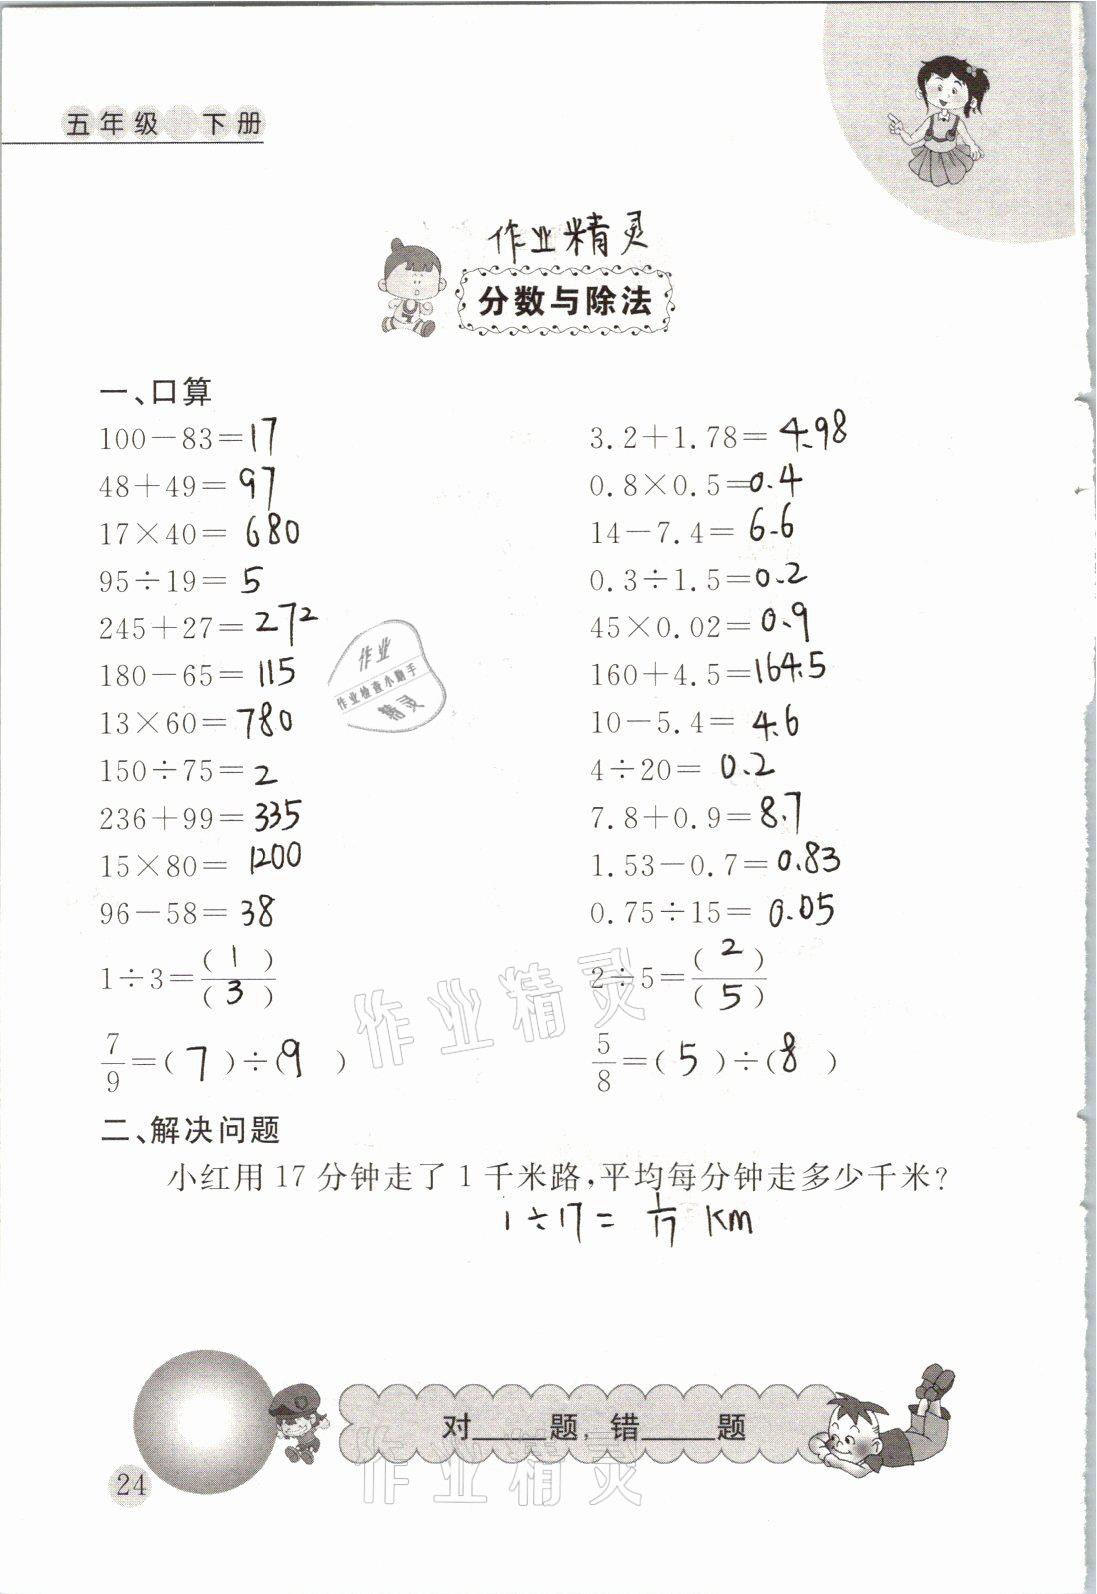 五年级 下册
作业精灵
分数与除法
一、口算
100－83＝17
3.2＋1.78＝4.98
48＋49＝97
0.8×0.5＝0.4
17×40＝680
14－7.4＝6.6
95÷19＝5
0.3÷1.5＝0.2
245＋27＝272
45×0.02＝0.9
180－65＝115
160＋4.5＝164.5
13×60＝780
10－5.4＝4.6
150÷75＝2
4÷20＝0.2
236＋99＝335
7.8＋0.9＝8.7
15×80＝1200
1.53－0.7＝0.83
96－58＝38
0.75÷15＝0.05
1÷3＝(1)/(3)
2÷5＝(2)/(5)
7/9＝(7)÷(9)
5/8＝(5)÷(8)
作业
作业检查小助手
精灵
作业精灵
二、解决问题
小红用17分钟走了1千米路,平均每分钟走多少千米?
1÷17＝1/17 KM
对____题,错____题
作业精灵
24